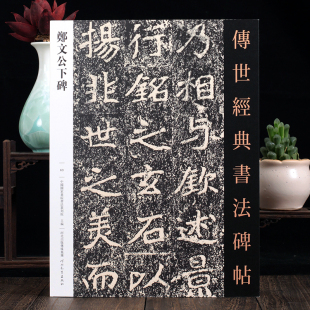 傳世經典書法碑帖
乃相与歔述景
行銘之玄石以
揚非世之美而
鄭文公下碑